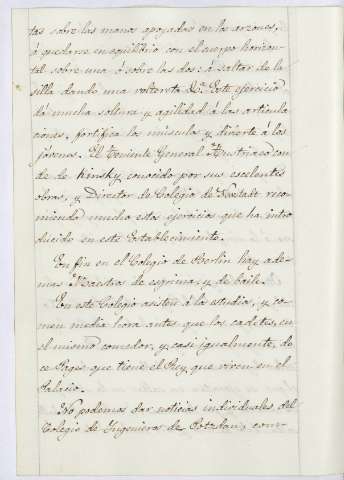 tas sobre las manos apoyadas en los arzones,
ó quedarse en equilibrio con el cuerpo horizon-
tal sobre una ó sobre las dos: á saltar de la
silla dando una voltereta &.ª Este ejercicio
dá mucha soltura y agilidad á las articula-
ciones, fortifica los músculos y divierte á los
jóvenes. El Teniente General Austriaco con-
de de Kinsky conocido por sus escelentes
obras, y Director de Colegio de Neustadt reco-
mienda mucho estos ejercicios que ha intro-
ducido en este Establecimiento.
En fin en el Colegio de Berlin hay ade-
mas Maestros de esgrima y de baile.
En este Colegio asisten á la estudio, y co-
men media hora antes que los cadetes, en
el mismo comedor, y casi igualmente, do-
ce Pages que tiene el Rey que viven en el
Palacio.
No podemos dar noticias individuales del
Colegio de Ingenieros de Potzdan, conv-